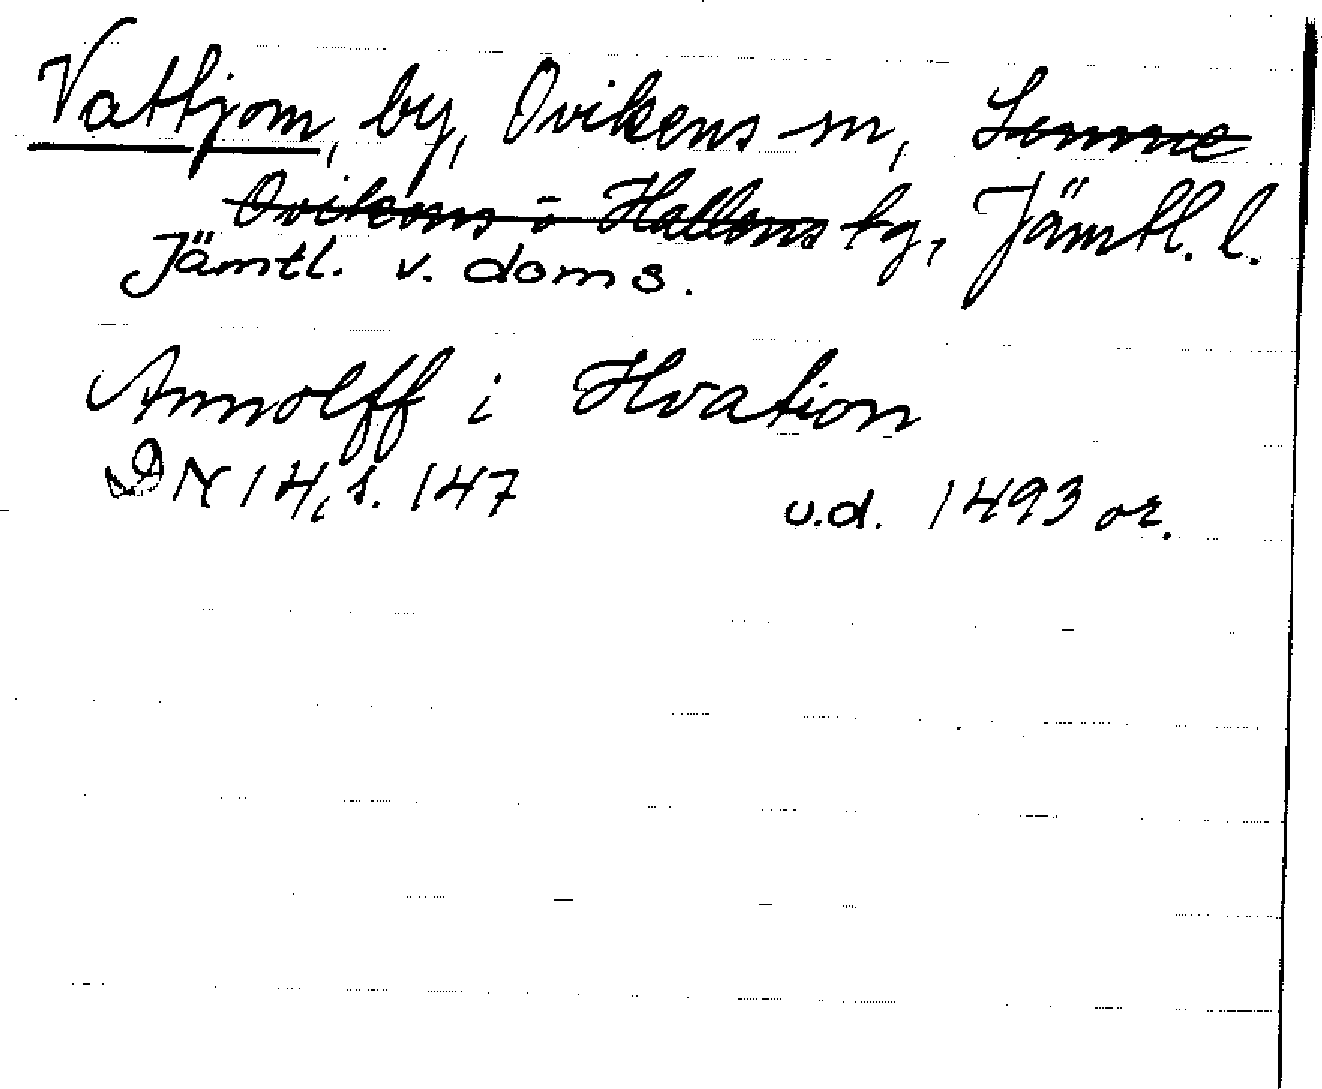 Vattjom, by, Ovikens sn, Sunne
Ovikens o Hallens tg, Jämtl. l.
Jämtl. v. doms.
Arnnolff i Hvation
DN 14, s. 147 u.d. 1493 or.